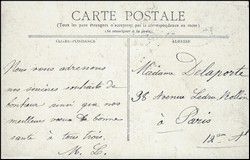 CARTE POSTALE
(Tous les pays étrangers n'acceptent pas la correspondance au recto)
(Se renseigner à la poste)
CORRESPONDANCE
ADRESSE
Nous vous adressons
nos sincères souhaits de
bonheur ainsi que nos
meilleurs vœux de bonne
santé à tous trois.
M. L.
Madame Delaporte
38 Avenue Ledru Rollin
à Paris
12me